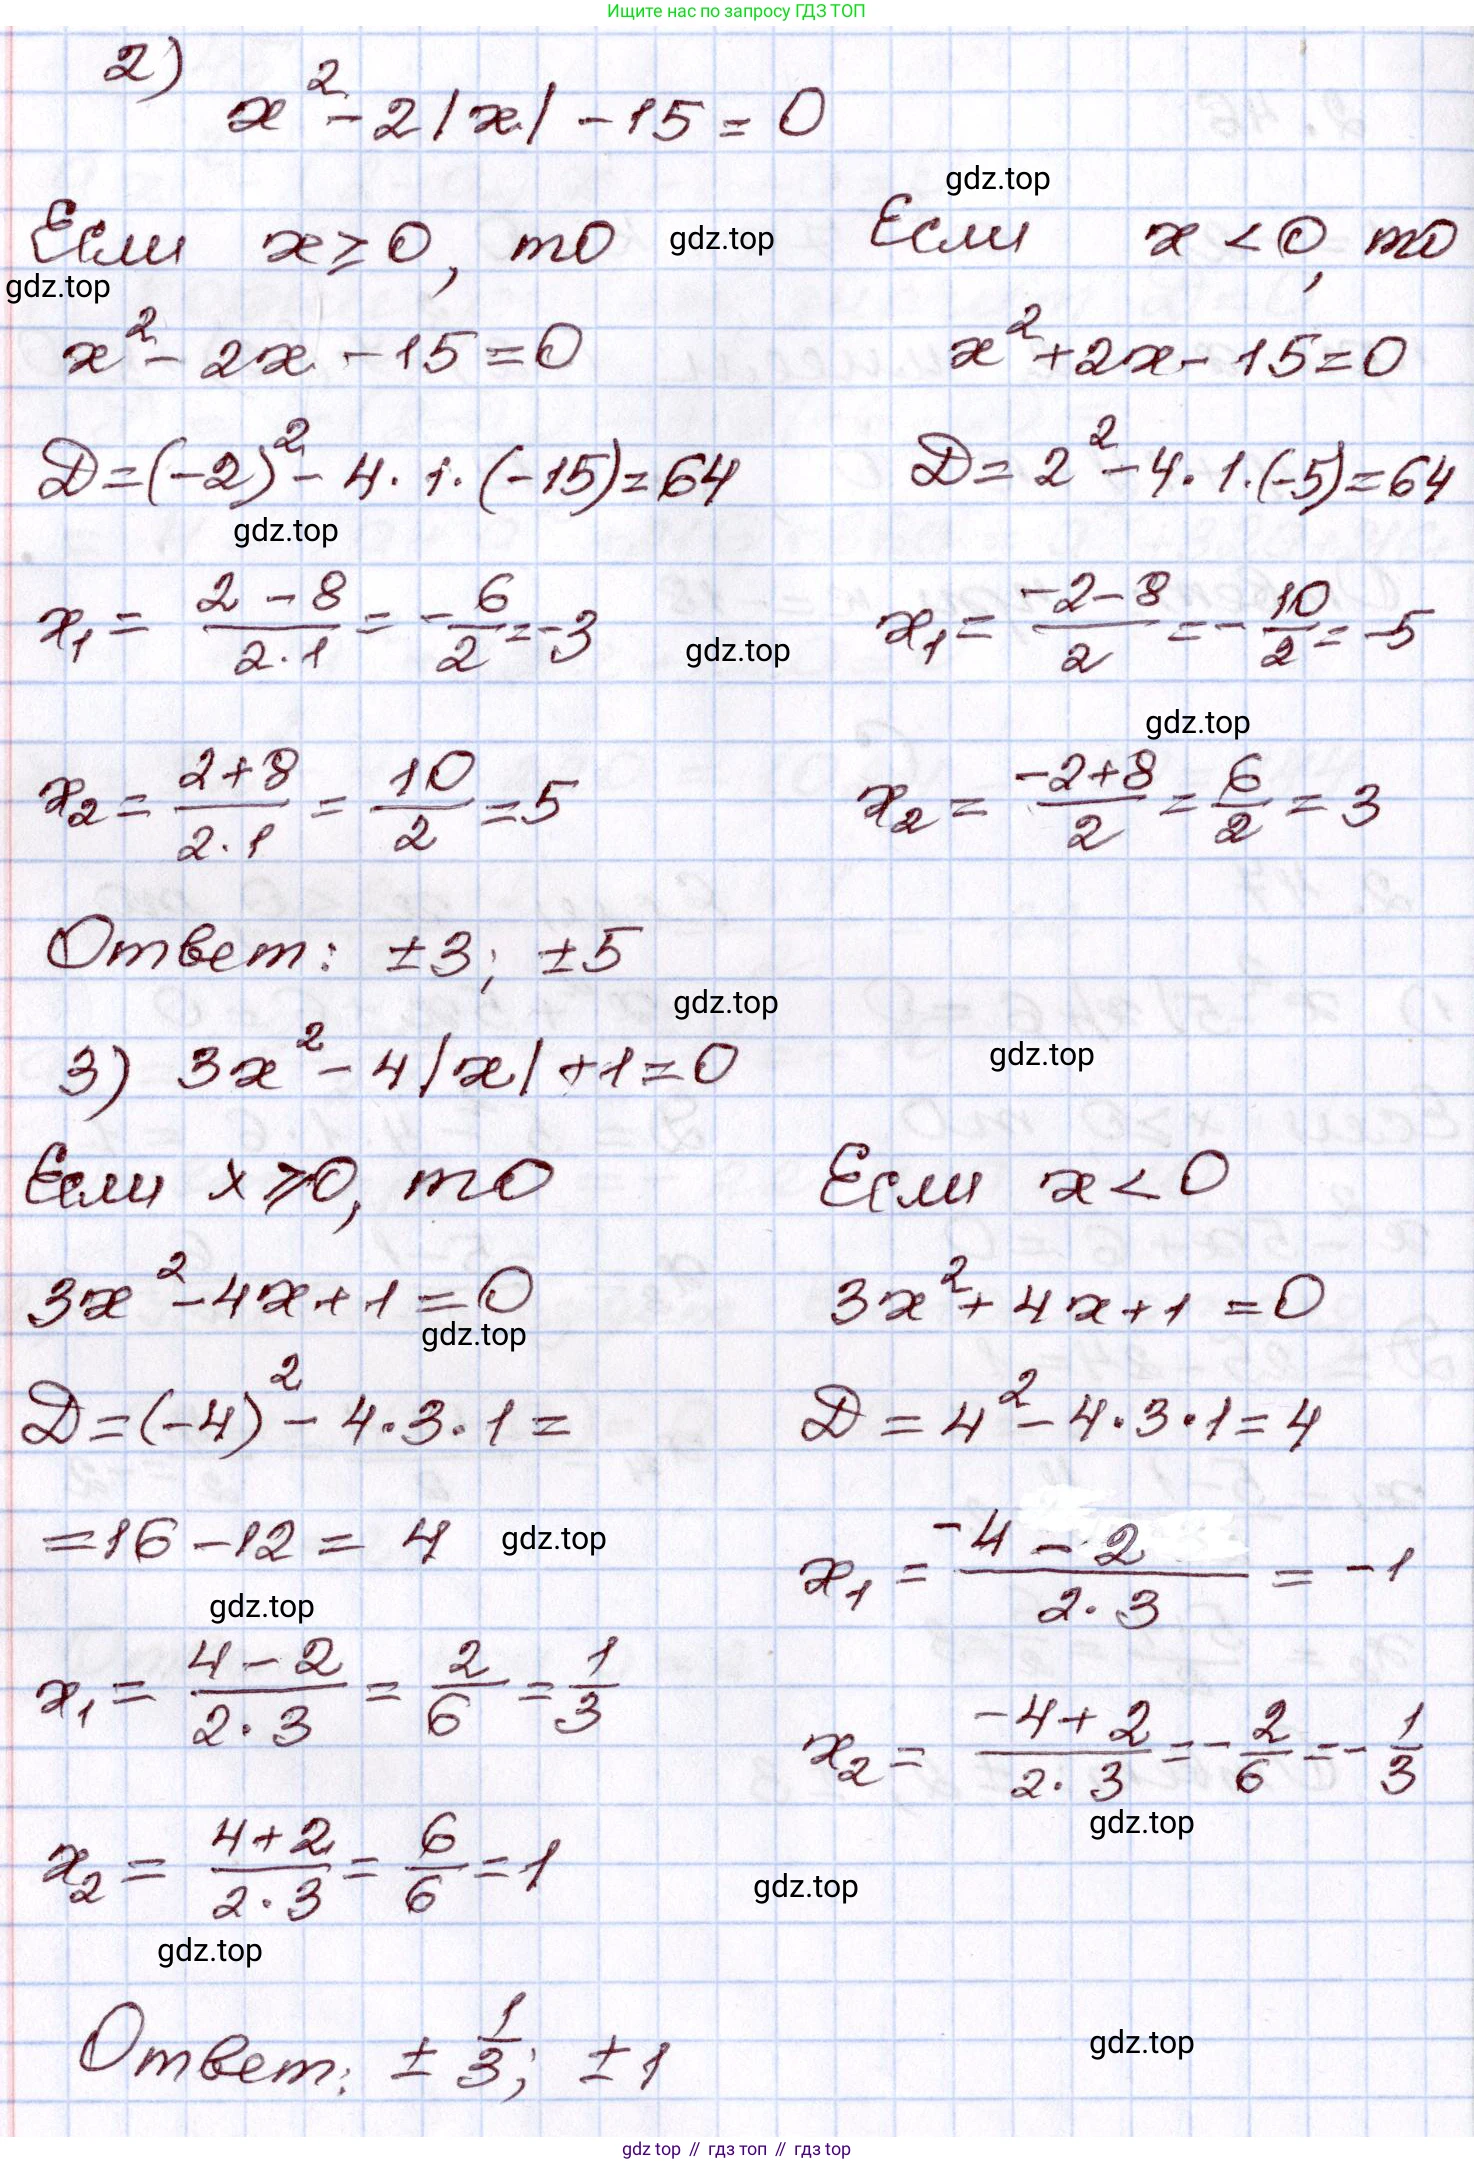 Ищите нас по запросу ГДЗ ТОП
2)
x² - 2|x| - 15 = 0
gdz.top
Если x ≥ 0, то
gdz.top
Если x < 0, то
gdz.top
x² - 2x - 15 = 0
x² + 2x - 15 = 0
D = (-2)² - 4 · 1 · (-15) = 64
D = 2² - 4 · 1 · (-5) = 64
gdz.top
x₁ = (2 - 8)/(2 · 1) = -6/2 = -3
gdz.top
x₁ = (-2 - 8)/2 = -10/2 = -5
gdz.top
x₂ = (2 + 8)/(2 · 1) = 10/2 = 5
x₂ = (-2 + 8)/2 = 6/2 = 3
Ответ: ±3; ±5
gdz.top
3) 3x² - 4|x| + 1 = 0
gdz.top
Если x ≥ 0, то
Если x < 0
3x² - 4x + 1 = 0
3x² + 4x + 1 = 0
gdz.top
D = (-4)² - 4 · 3 · 1 =
D = 4² - 4 · 3 · 1 = 4
= 16 - 12 = 4
gdz.top
x₁ = (-4 - 2)/(2 · 3) = -1
gdz.top
x₁ = (4 - 2)/(2 · 3) = 2/6 = 1/3
x₂ = (-4 + 2)/(2 · 3) = -2/6 = -1/3
gdz.top
x₂ = (4 + 2)/(2 · 3) = 6/6 = 1
gdz.top
gdz.top
Ответ: ±1/3; ±1
gdz.top
gdz top // гдз топ // гдз top